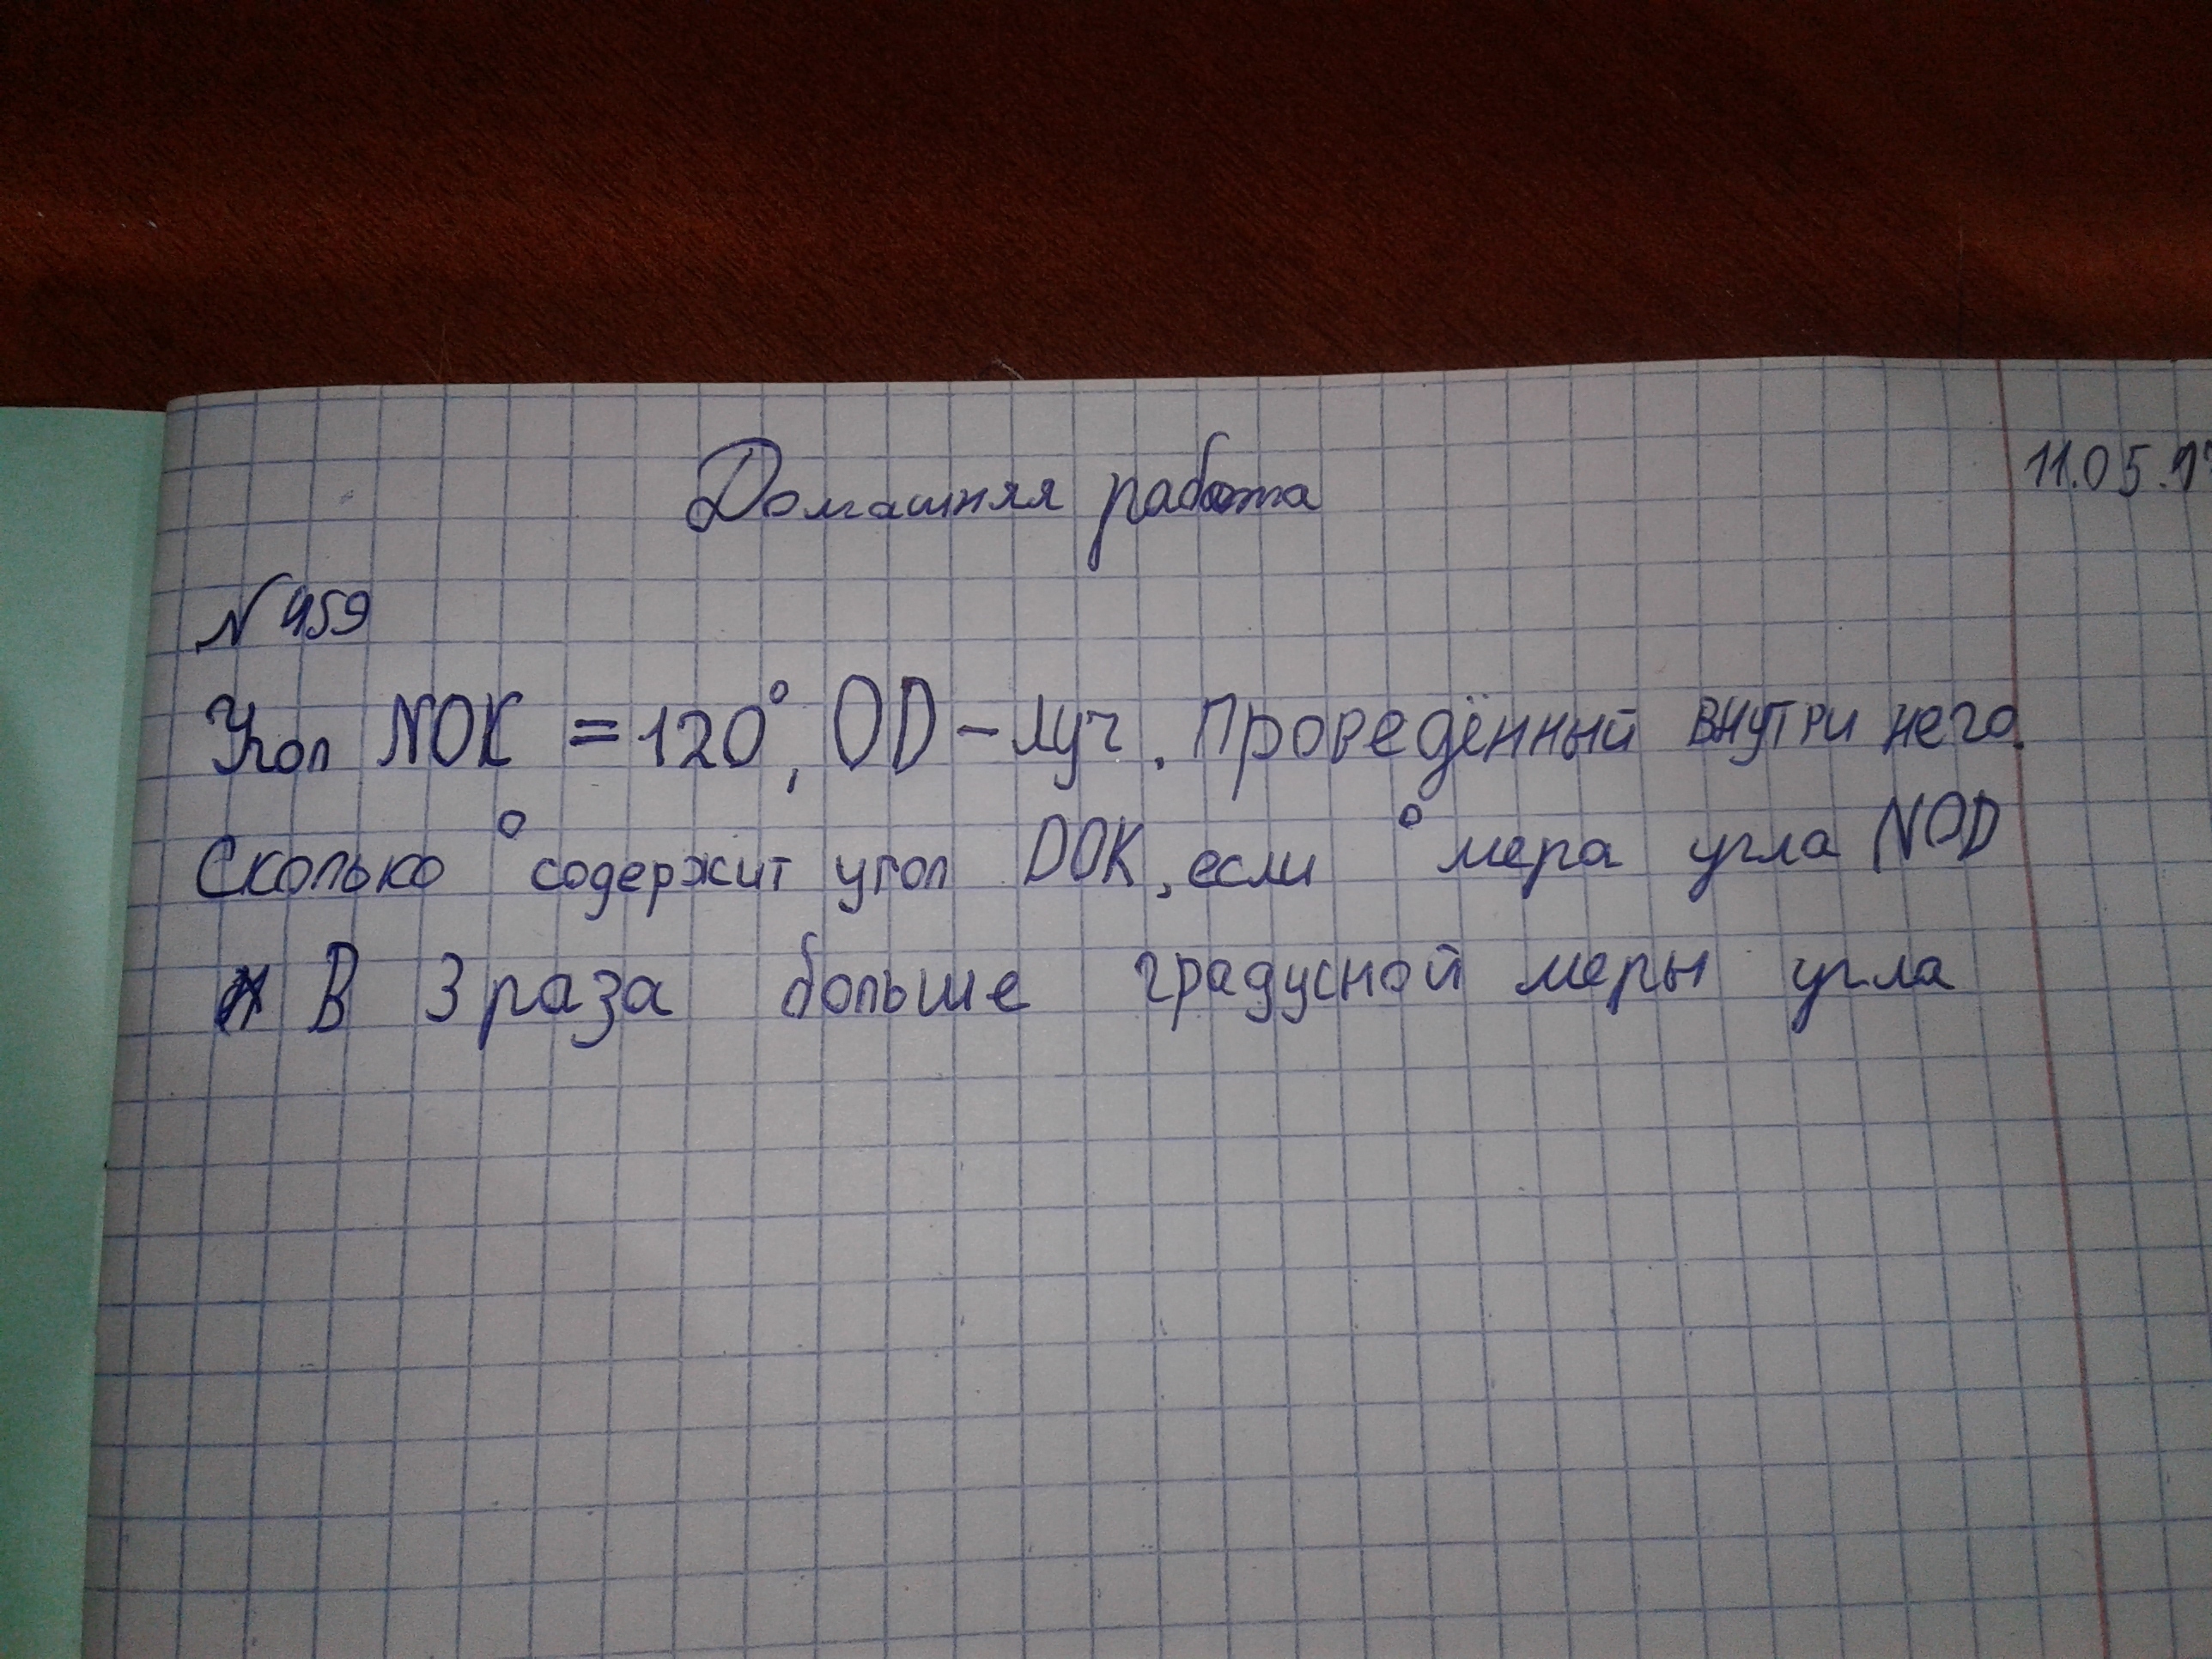 Домашняя работа
11.05.17
N 459
Угол NOK = 120°, OD – луч, проведённый внутри него.
Сколько ° содержит угол DOK, если ° мера угла NOD
В 3 раза больше градусной меры угла